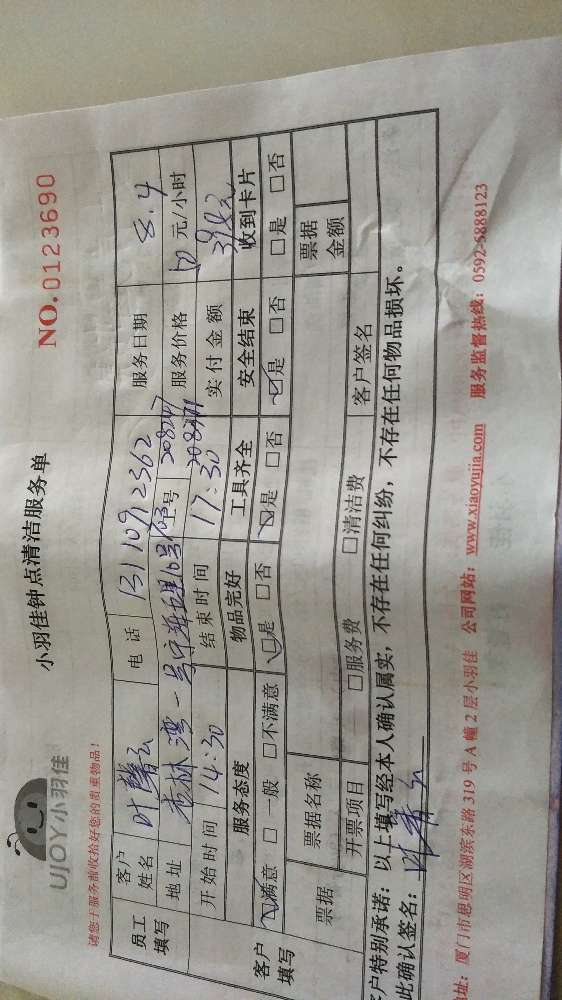 UJOY小羽佳
小羽佳钟点清洁服务单
NO.0123690
请您于服务前收拾好您的贵重物品!
员工填写
客户姓名 叶馨云 电话 服务日期 8.4
地址 杏林湾一号 工号 服务价格 元/小时
开始时间 14:30 结束时间 17:30 实付金额
客户填写
服务态度 物品完好 工具齐全 安全结束 收到卡片
☑满意 □一般 □不满意 ☑是 □否 ☑是 □否 ☑是 □否 □是 □否
票据 票据名称 票据金额
开票项目 □服务费 □清洁费 客户签名
客户特别承诺:以上填写经本人确认属实,不存在任何纠纷,不存在任何物品损坏。
此确认签名:叶馨云
地址:厦门市思明区湖滨东路319号A幢2层小羽佳 公司网站:www.xiaoyujia.com 服务监督热线:0592-5888123